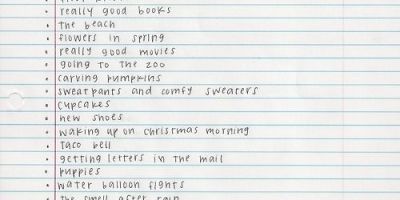 • really good books
• the beach
• flowers in spring
• really good movies
• going to the zoo
• carving pumpkins
• sweatpants and comfy sweaters
• cupcakes
• new shoes
• waking up on christmas morning
• taco bell
• getting letters in the mail
• puppies
• water balloon fights
• the smell after rain